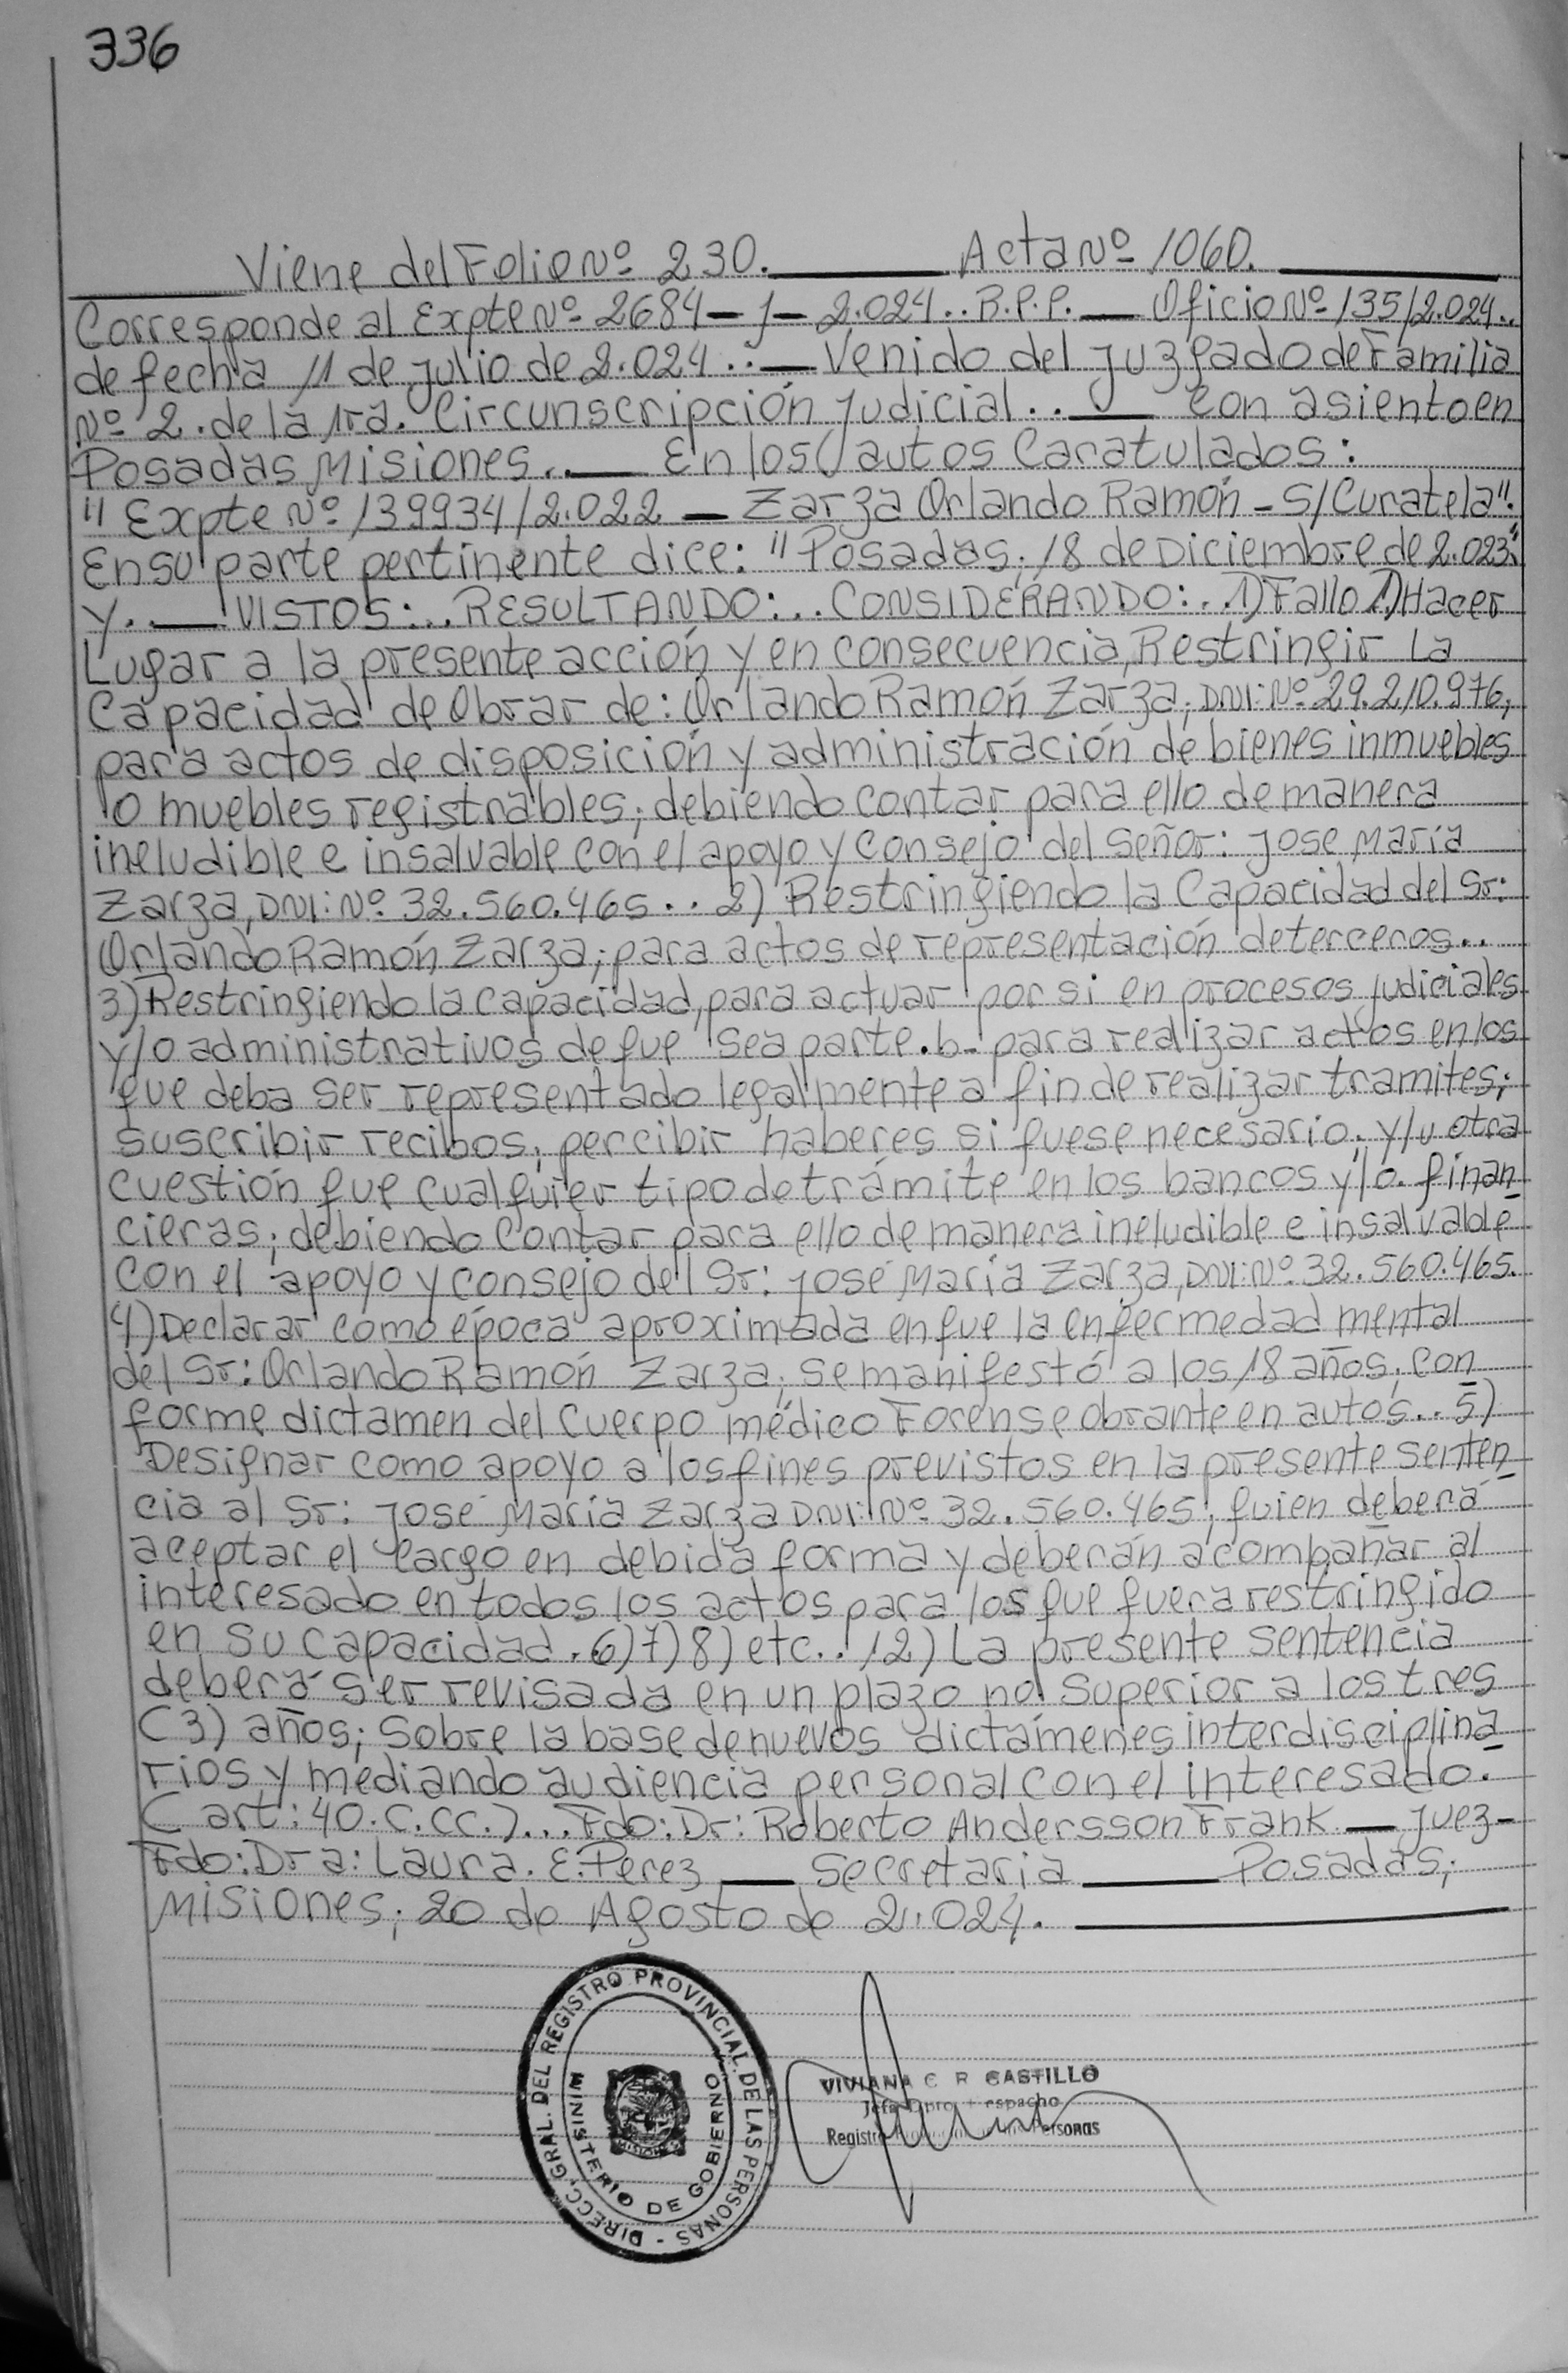 336
Viene del Folio Nº 230. Acta Nº 1060.
Corresponde al Expte Nº 2684 - J - 2.024.. R.P.P. — Oficio Nº 135/2.024..
de fecha 11 de Julio de 2.024.. — Venido del Juzgado de Familia
Nº 2. de la 1ra. Circunscripción Judicial.. — Con asiento en
Posadas Misiones.. — En los autos Caratulados:
"Expte Nº 139934/2.022 — Zarza Orlando Ramón - S/Curatela".
En su parte pertinente dice: "Posadas; 18 de Diciembre de 2.023."
Y.. — VISTOS:.. RESULTANDO:.. CONSIDERANDO:.. 1) Fallo 1) Hacer
Lugar a la presente acción y en consecuencia, Restringir La
Capacidad de Obrar de: Orlando Ramón Zarza; DNI: Nº 29.210.976;
para actos de disposición y administración de bienes inmuebles
o muebles registrables; debiendo contar para ello de manera
ineludible e insalvable con el apoyo y Consejo del Señor: Jose María
Zarza, DNI: Nº 32.560.465.. 2) Restringiendo la Capacidad del Sr:
Orlando Ramón Zarza; para actos de representación de terceros..
3) Restringiendo la capacidad, para actuar por si en procesos Judiciales
y/o administrativos de que sea parte. b- para realizar actos en los
que deba ser representado legalmente a fin de realizar tramites;
suscribir recibos; percibir haberes si fuese necesario; y/u otra
cuestión que cualquier tipo de trámite en los bancos y/o. finan
cieras; debiendo Contar para ello de manera ineludible e insalvable
Con el apoyo y consejo del Sr: José María Zarza, DNI: Nº 32.560.465.
4) Declarar como época aproximada en que la enfermedad mental
del Sr: Orlando Ramón Zarza; se manifestó a los 18 años; con
forme dictamen del Cuerpo médico Forense obrante en autos.. 5)
Designar como apoyo a los fines previstos en la presente senten
cia al Sr: José María Zarza DNI: Nº 32.560.465; quien deberá
aceptar el Cargo en debida forma y deberán acompañar al
interesado en todos los actos para los que fuera restringido
en su capacidad. 6) 7) 8) etc.. 12) La presente sentencia
deberá ser revisada en un plazo no superior a los tres
(3) años; Sobre la base de nuevos dictámenes interdisciplina
rios y mediando audiencia personal con el interesado.
(art: 40. C.CC.)... Fdo: Dr: Roberto Andersson Frank — Juez-
Fdo: Dra: Laura. E. Perez — Secretaria — Posadas;
Misiones; 20 de Agosto de 2.024.
DIRECC. GRAL. DEL REGISTRO PROVINCIAL DE LAS PERSONAS -
MINISTERIO DE GOBIERNO
VIVIANA C R CASTILLO
Personas